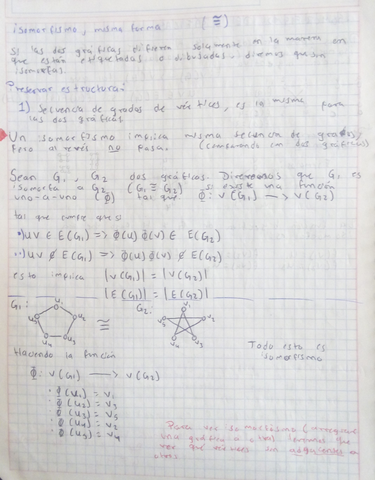 isomorfismo, misma forma (≅)
Si las dos gráficas difieren solamente en la manera en
que están etiquetadas o dibujadas, diremos que son
isomorfas.
Preservar estructura:
1) Secuencia de grados de vértices, es la misma para
las dos gráficas
Un isomorfismo implica misma secuencia de grados,
pero al revés no pasa. (comparando con dos gráficas)
Sean G₁, G₂ dos gráficas. Diremos que G₁ es
isomorfa a G₂ (G₁ ≅ G₂) si existe una función
uno-a-uno (Φ) tal que Φ: V(G₁) → V(G₂)
tal que cumple que:
•) uv ∈ E(G₁) => Φ(u) Φ(v) ∈ E(G₂)
••) uv ∉ E(G₁) => Φ(u) Φ(v) ∉ E(G₂)
esto implica |V(G₁)| = |V(G₂)|
|E(G₁)| = |E(G₂)|
G₁: ≅ G₂:
Todo esto es
isomorfismo
Haciendo la función
Φ: V(G₁) → V(G₂)
· Φ(u₁) = v₁
· Φ(u₂) = v₃
· Φ(u₃) = v₅
· Φ(u₄) = v₂
· Φ(u₅) = v₄
Para ver isomorfismo
una gráfica a otra tenemos que
ver que vértices son adyacentes a
otros.